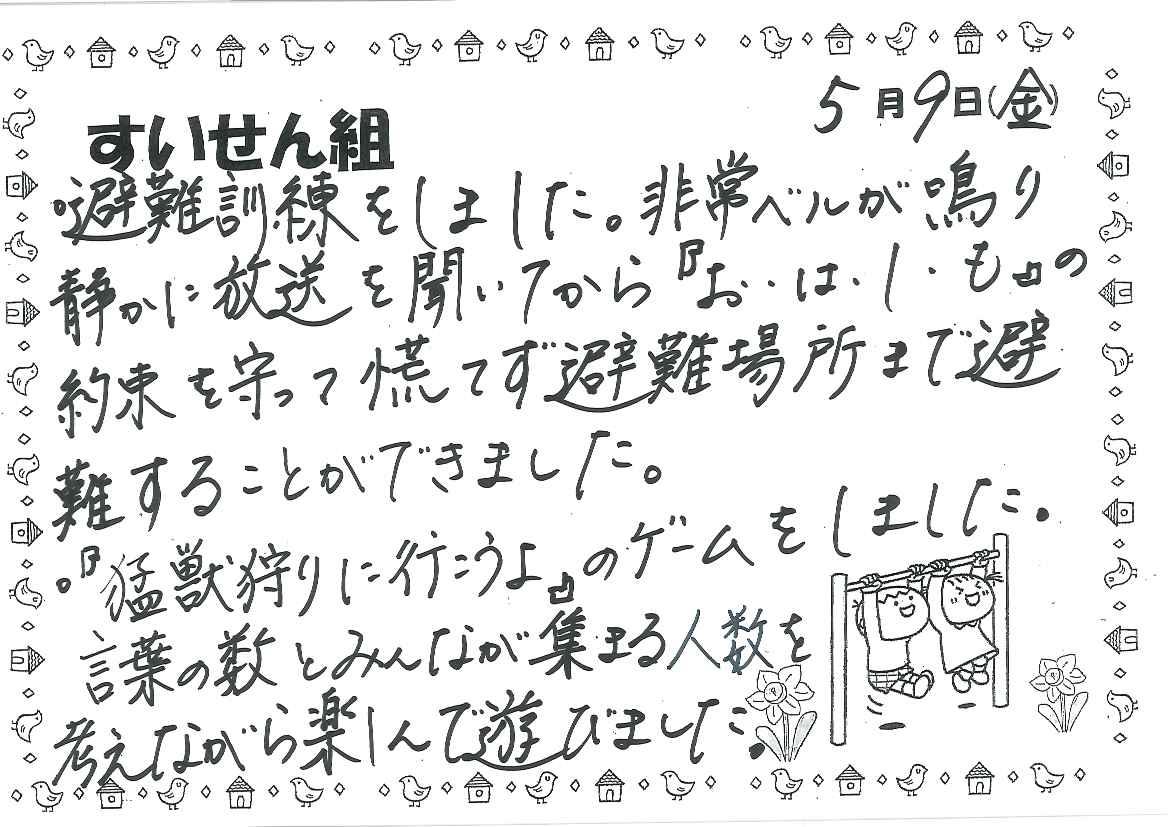 5月9日(金)
すいせん組
。避難訓練をしました。非常ベルが鳴り
静かに放送を聞いてから『お・は・し・も』の
約束を守って慌てず避難場所まで避
難することができました。
。『猛獣狩りに行こうよ』のゲームをしました。
言葉の数とみんなが集まる人数を
考えながら楽しんで遊びました。